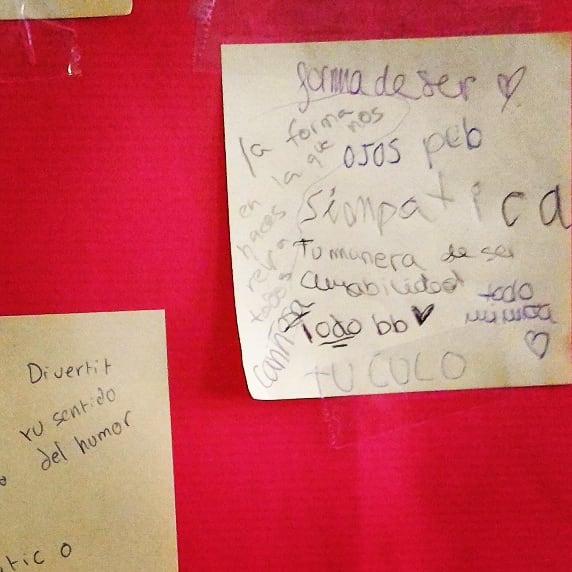 forma de ser ♡
la forma
en la que nos
haces
reir a
todos
ojos peb
simpatica
Tu manera de ser
Amabilidad
Todo bb ♥
todo
♡
cariñosa
TU CULO
Divertit
tu sentido
del humor
tic o